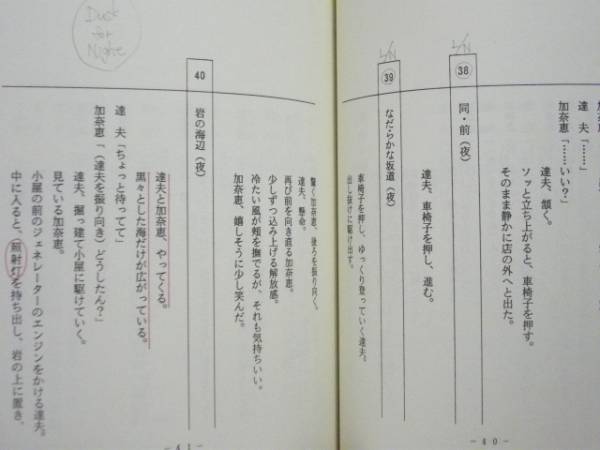 加奈恵「……いい？」
達　夫「……」
達夫、頷く。
ソッと立ち上がると、車椅子を押す。
そのまま静かに店の外へと出た。
L/N
38
同・前（夜）
達夫、車椅子を押し、進む。
L/N
39
なだらかな坂道（夜）
車椅子を押し、ゆっくり登っていく達夫。
出し抜けに駆け出す。
－40－
驚く加奈恵、後ろを振り向く。
達夫、懸命。
再び前を向き直る加奈恵。
少しずつ込み上げる解放感。
冷たい風が頬を撫でるが、それも気持ちいい。
加奈恵、嬉しそうに少し笑んだ。
40
岩の海辺（夜）
Dusk
for
Night
達夫と加奈恵、やってくる。
黒々とした海だけが広がっている。
達　夫「ちょっと待ってて」
加奈恵「（達夫を振り向き）どうしたん？」
達夫、掘っ建て小屋に駆けていく。
見ている加奈恵。
小屋の前のジェネレーターのエンジンをかける達夫。
中に入ると、照射灯を持ち出し、岩の上に置き、
－41－